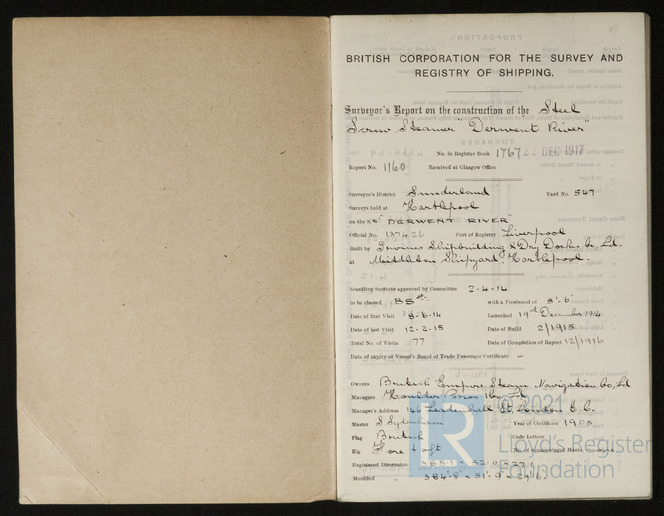 BRITISH CORPORATION FOR THE SURVEY AND
REGISTRY OF SHIPPING.
Surveyor's Report on the construction of the Steel
Screw Steamer "Derwent River"
No. in Register Book 1767 DEC 1917
Report No. 1160 Received at Glasgow Office
Surveyor's District Sunderland Yard No. 547
Surveys held at Hartlepool
on the SS "DERWENT RIVER"
Official No. 137426 Port of Registry Liverpool
Built by Irvines Shipbuilding & Dry Docks Co, Ltd.
at Middleton Shipyard Hartlepool.
Scantling Sections approved by Committee 2-4-14
to be classed BS with a Freeboard of
Date of first Visit 8-6-14 Launched 19th December 1914
Date of last Visit 12-2-15 Date of Build 2/1915
Total No. of Visits 77 Date of Completion of Report 12/1916
Date of expiry of Vessel's Board of Trade Passenger Certificate
Owners British Empire Steam Navigation Co, Ltd
Managers Houlder Bros & Co Ld
Manager's Address 146 Leadenhall St. London E.C.
Master S Sydenham Year of Certificate 1905
Flag British Code Letters
Rig Fore & aft No. of Square Rigged Masts
Registered Dimension
Moulded 384'-8" × 51'-9" × 29'6"
© 2021
Lloyd's Register
Foundation